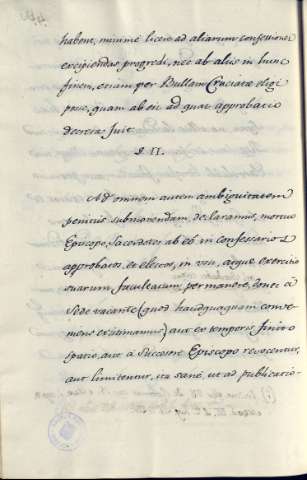 habent, minimè liceat ad aliarum confessiones
excipiendas progredi, nec ab aliis in hunc
finem, etiam per Bullam Cruciatæ eligi
posse, quam ab eis ad quas approbatio
decreta fuit.
§. II.
Ad omnem autem ambiguitatem
penitus submovendam, declaramus, mortuo
Episcopo, Sacerdotes ab eo in confessarios
approbatos, et electos, in usu, atque exercitio
suarum facultatum permanere, donec à
Sede vacante (quod haudquaquam conve-
niens existimamus) aut ex temporis finito
spatio, aut à Successore Episcopo revocentur,
aut limitentur, ita sanè, ut ad publicatio-